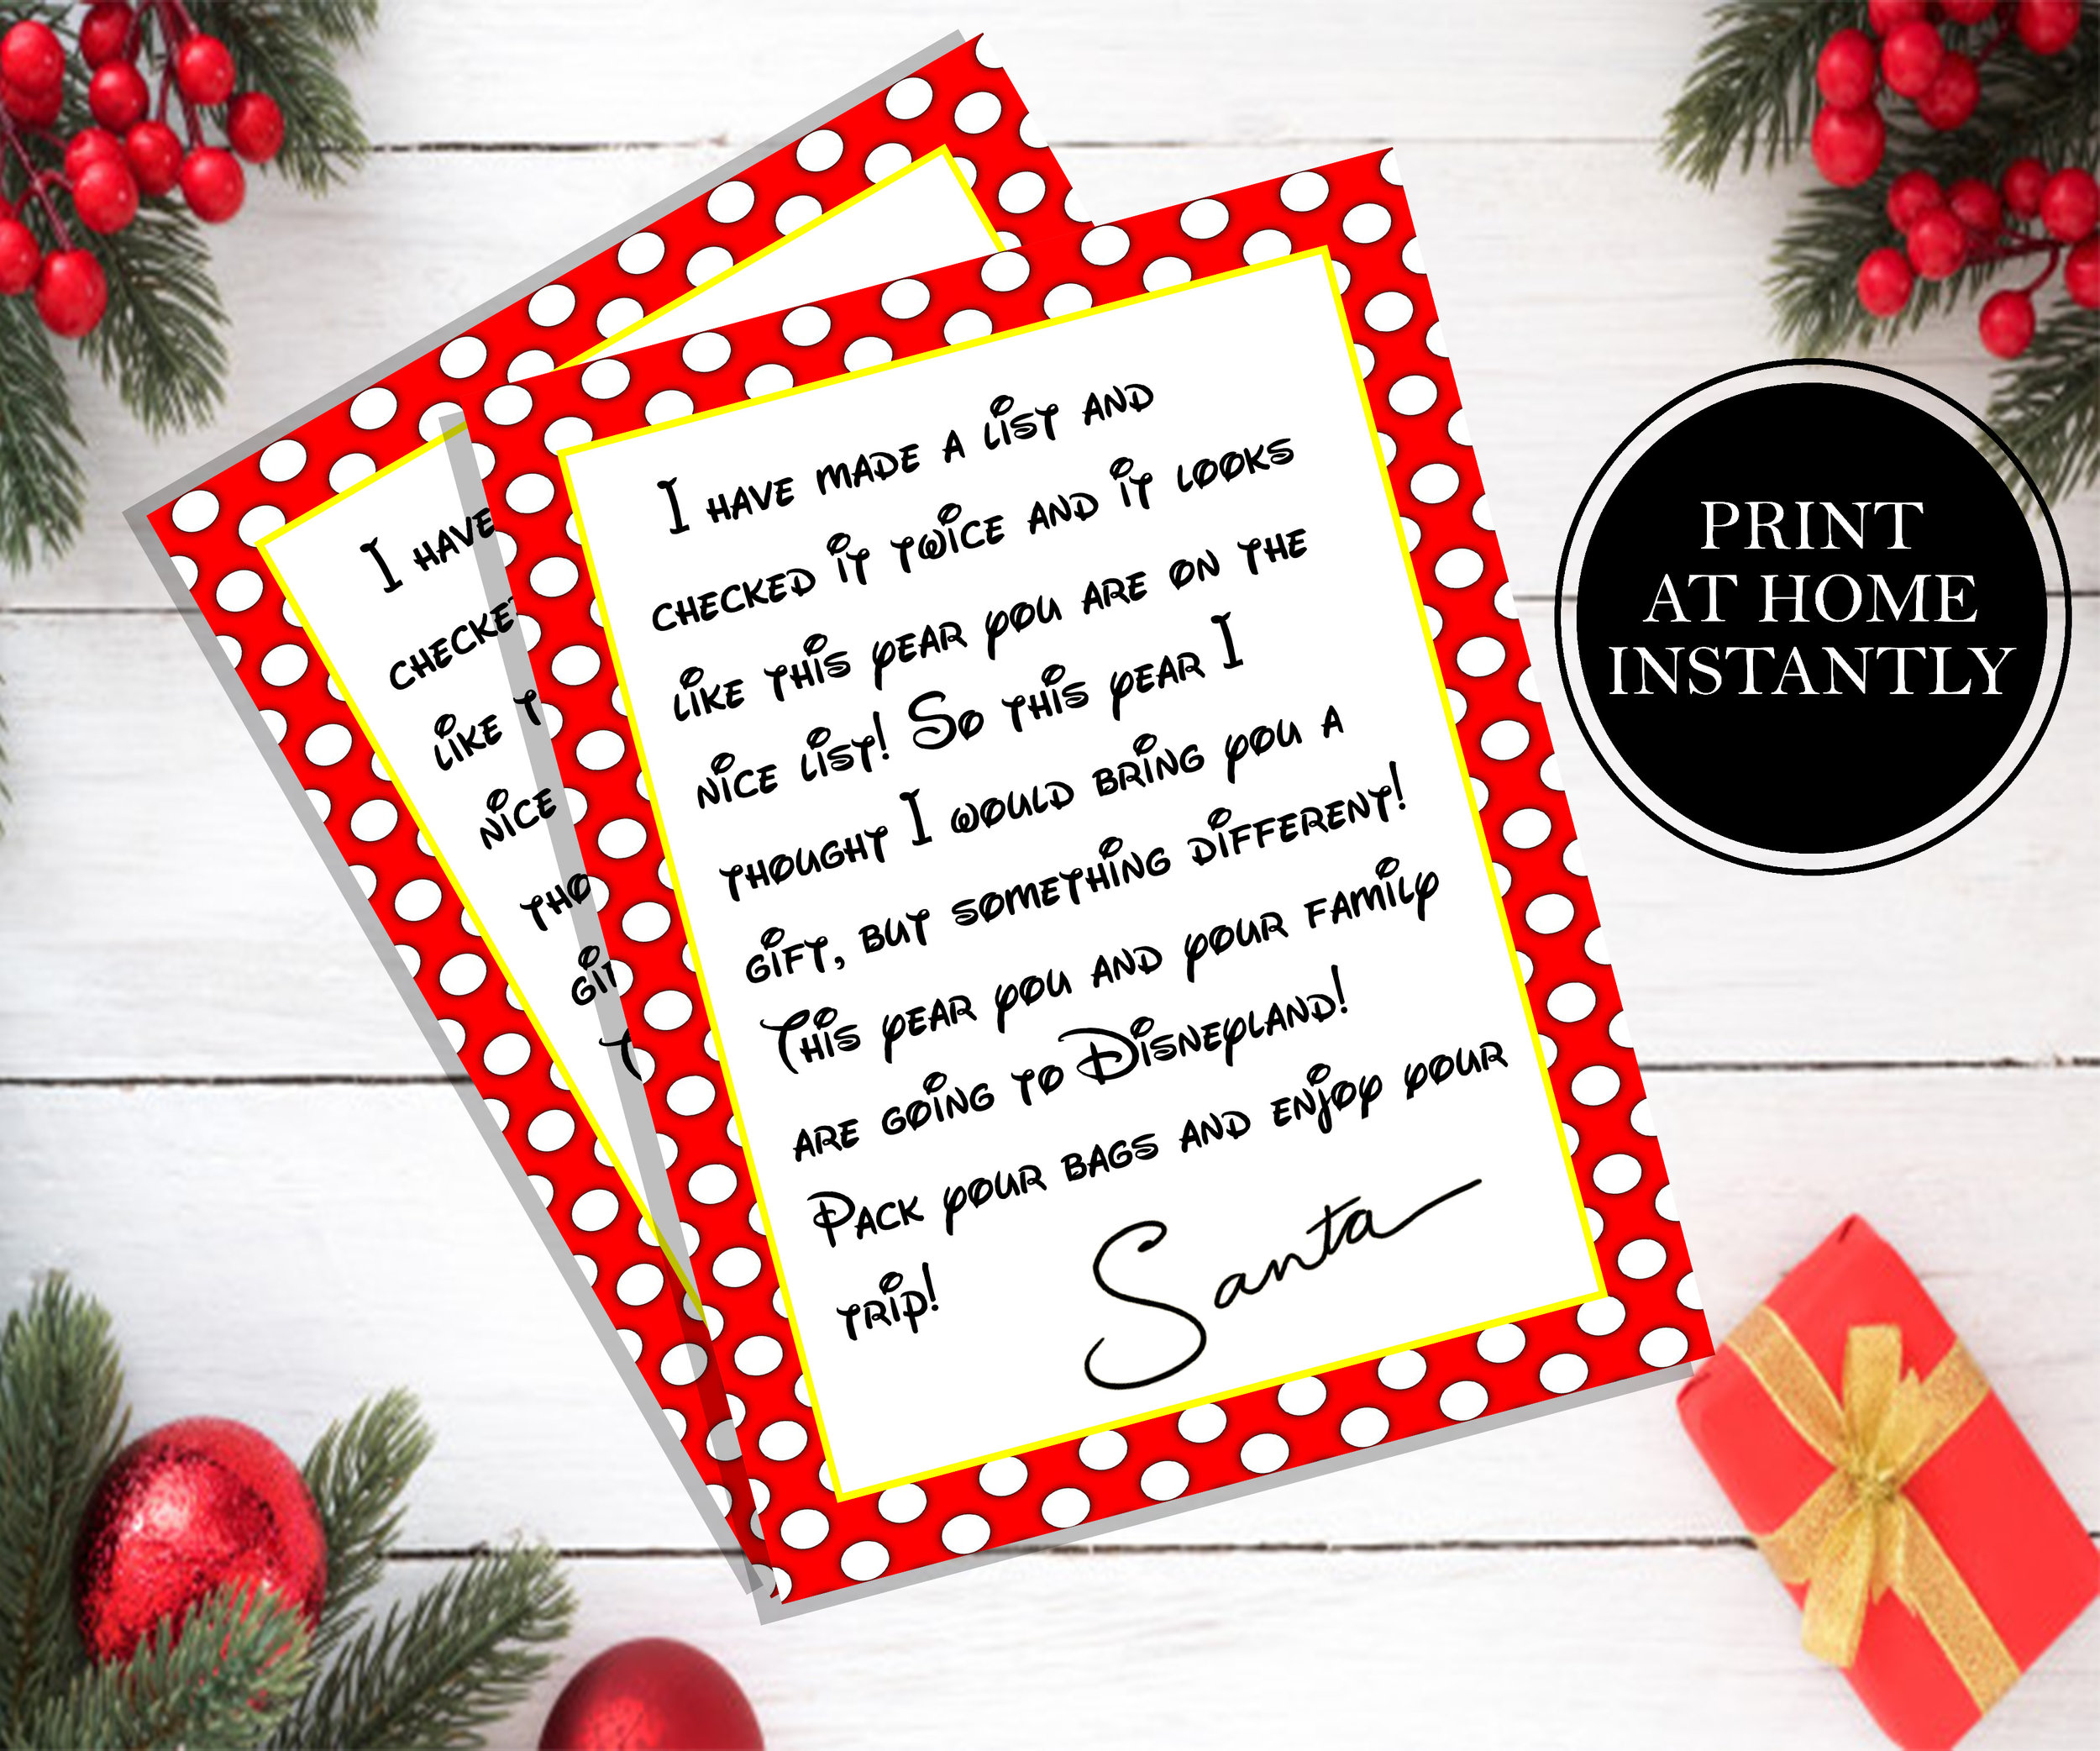 I have made a list and
checked it twice and it looks
like this year you are on the
nice list! So this year I
thought I would bring you a
gift, but something different!
This year you and your family
are going to Disneyland!
Pack your bags and enjoy your
trip!
Santa
I have
checke
like t
nice
tho
gi
T
PRINT
AT HOME
INSTANTLY